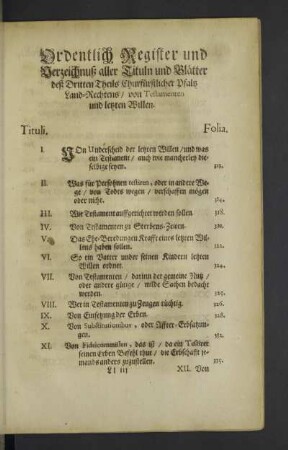 Ordentlich Register und
Verzeichnuß aller Tituln und Blätter
deß Dritten Theils Churfürstlicher Pfaltz
Land-Rechtens / von Testamenten
und letzten Willen.
Tituli. Folia.
I. VOn Underscheid der letzten Willen / und was
ein Testament / auch wie mancherley die-
selbige seyen.
II. Was für Persohnen testiren, oder in andere We-
ge / von Todes wegen / verschaffen mögen
oder nicht. 314.
III. Wie Testament auffgerichtet werden sollen. 318.
IV. Von Testamenten zu Sterbens-Zeiten. 320.
V. Das Ehe-Beredungen Krafft eines letzten Wil-
lens haben sollen.
VI. So ein Vatter under seinen Kindern letzten
Willen ordnet. 324.
VII. Von Testamenten / darinn der gemeine Nutz /
oder andere gütige / milde Sachen bedacht
werden. 325.
VIII. Wer in Testamenten zu Zeugen tüchtig. 326.
IX. Von Einsetzung der Erben. 328.
X. Von Substitutionibus, oder Affter-Erbsatzun-
gen. 332.
XI. Von Fideicommissen, das ist / da ein Testirer
seinen Erben Befehl thut / die Erbschafft je-
mands anders zuzustellen. 335.
Ll iij XII. Von